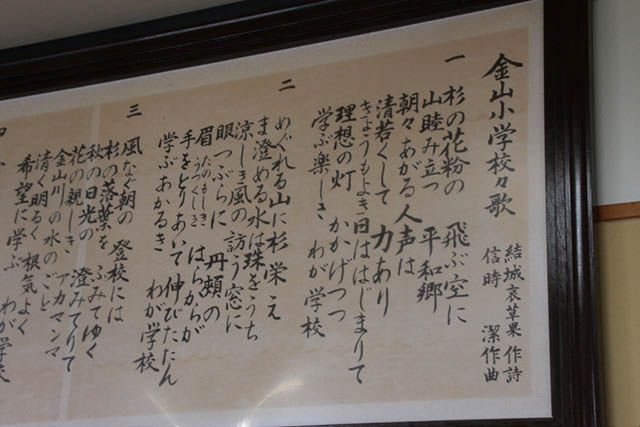 金山小学校々歌
結城哀草果 作詩
信時 潔 作曲
一
杉の花粉の 飛ぶ空に
山睦み立つ 平和郷
朝々あがる 人声は
清若くして 力あり
きょうもよき日はじまりて
理想の灯 かかげつつ
学ぶ楽しさ わが学校
二
めぐれる山に杉栄え
ま澄める水は珠をうち
涼しき風の訪う窓に
眼つぶらに 丹頬の
眉うつくしき はらからが
たのもしき
手をとりあいて伸びたたん
学ぶあかるさ わが学校
三
風なぐ朝の 登校には
杉の落葉を ふみてゆく
秋の日光の 澄みてりて
花の親しき アカマンマ
金山川の水のごと
清く明るく根気よく
希望に学ぶ わが学校
四